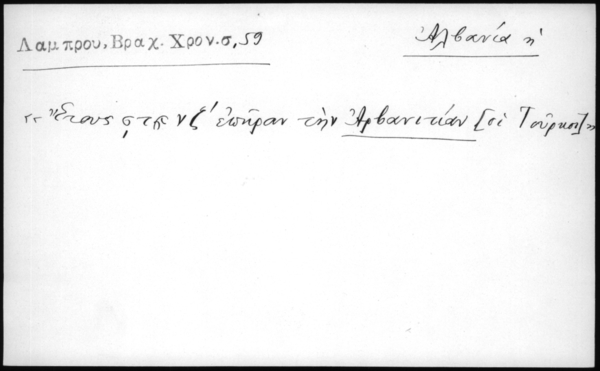 Λαμπρου, Βραχ. Χρον. σ, 59
Ἀλβανία ἡ
«Ἔτους ϛ νζʹ ἐπῆραν τὴν Ἀρβανιτίαν [οἱ Τοῦρκοι]»